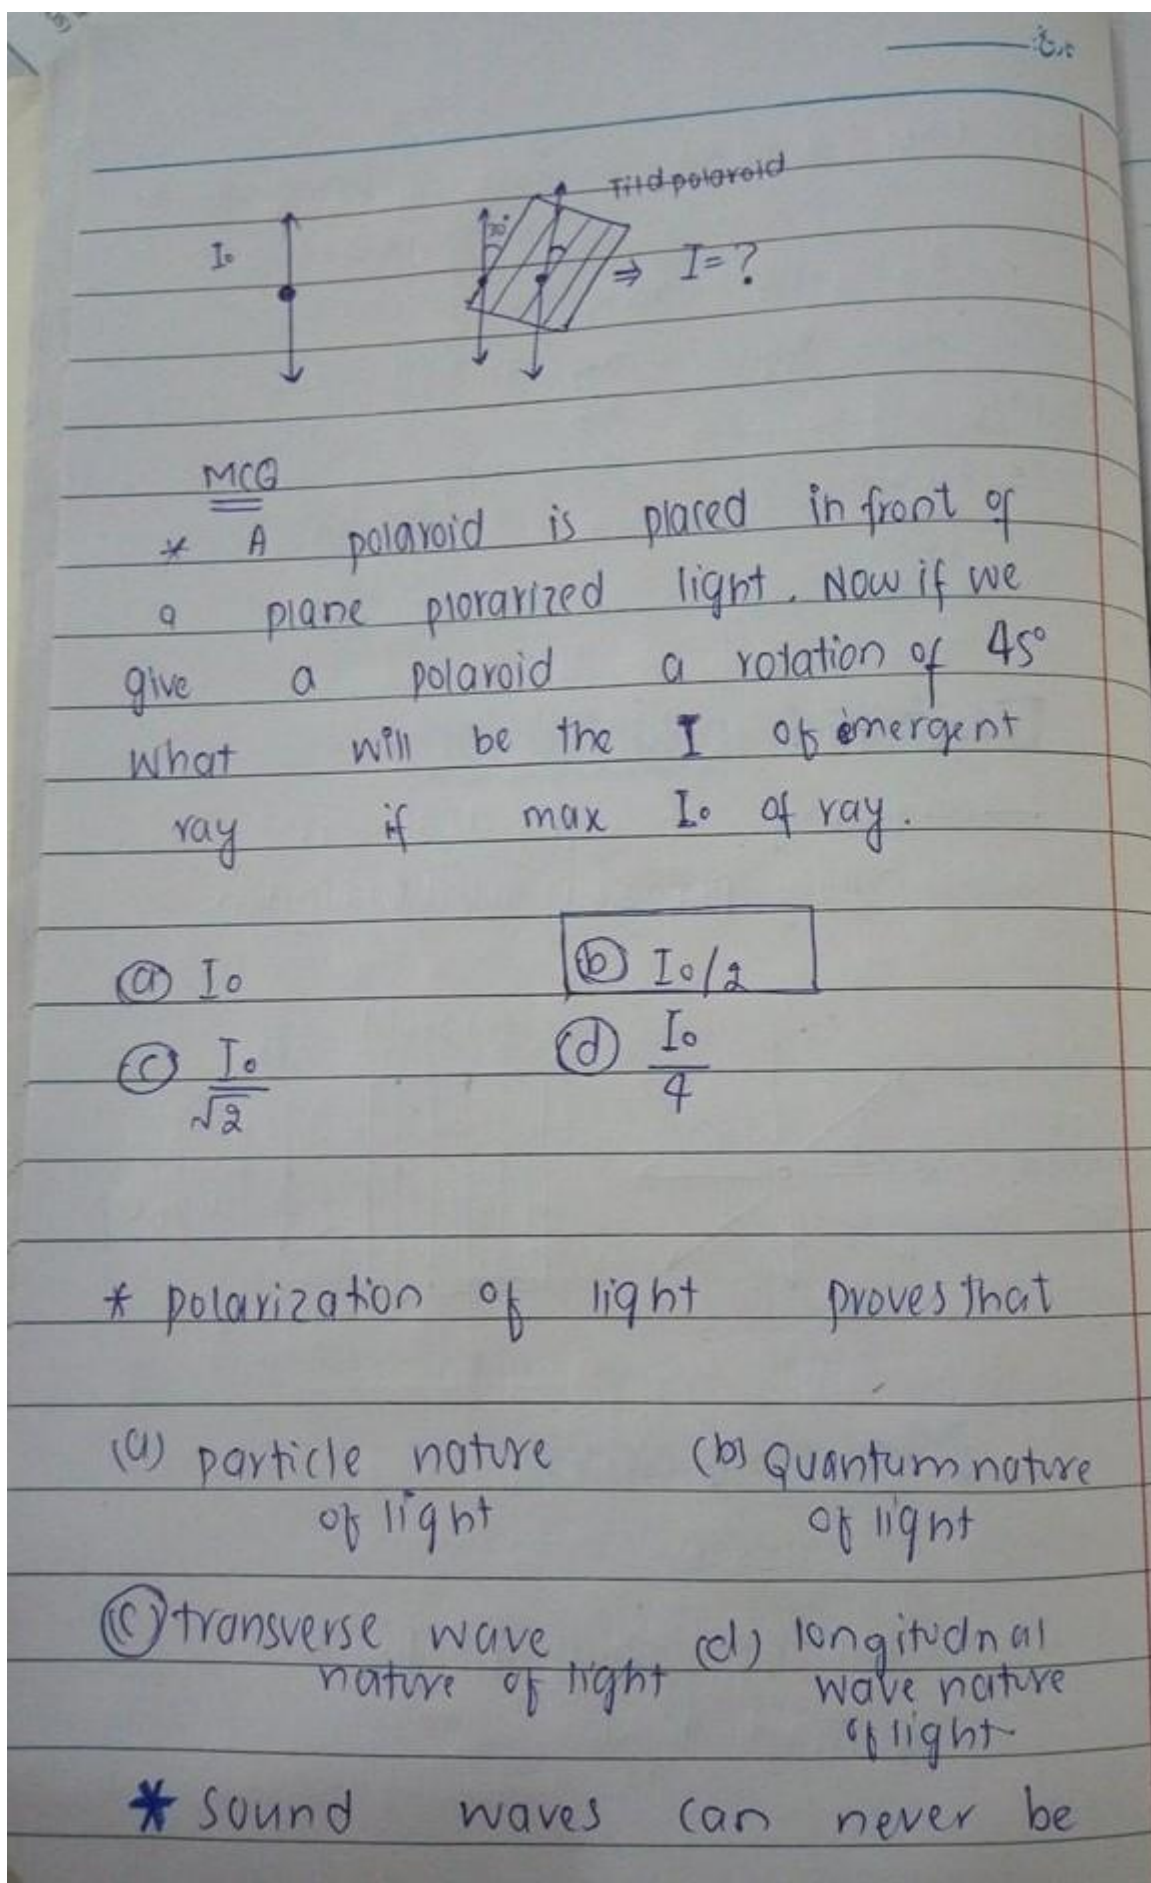 I₀
30°
Tild polaroid
⇒ I = ?
MCQ
* A polaroid is placed in front of
a plane plorarized light. Now if we
give a polaroid a rotation of 45°
what will be the I of emergent
ray if max I₀ of ray.
(a) I₀ (b) I₀/2
(c) I₀/√2 (d) I₀/4
* polarization of light proves that
(a) particle nature (b) Quantum nature
of light of light
(c) transverse wave (d) longitudnal
nature of light wave nature
of light
* sound waves can never be